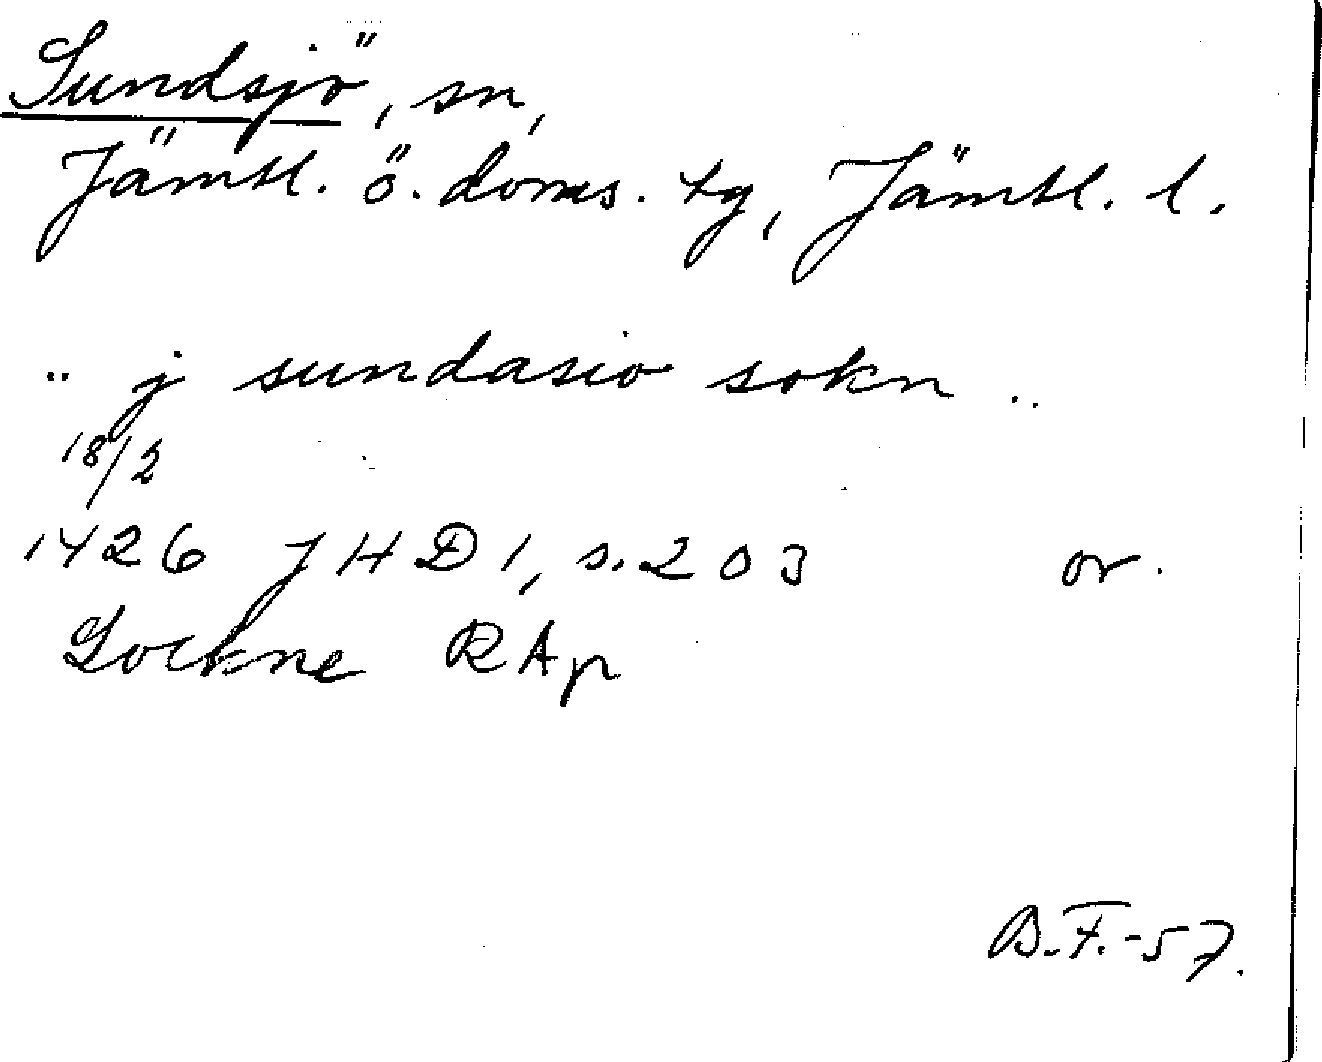 Sundsjö, sn,
Jämtl. ö. doms. tg, Jämtl. l.
.. j sundasio sokn ..
18/2
1426 JHD 1, s. 203 or.
Lockne RAp
B.F.-57.